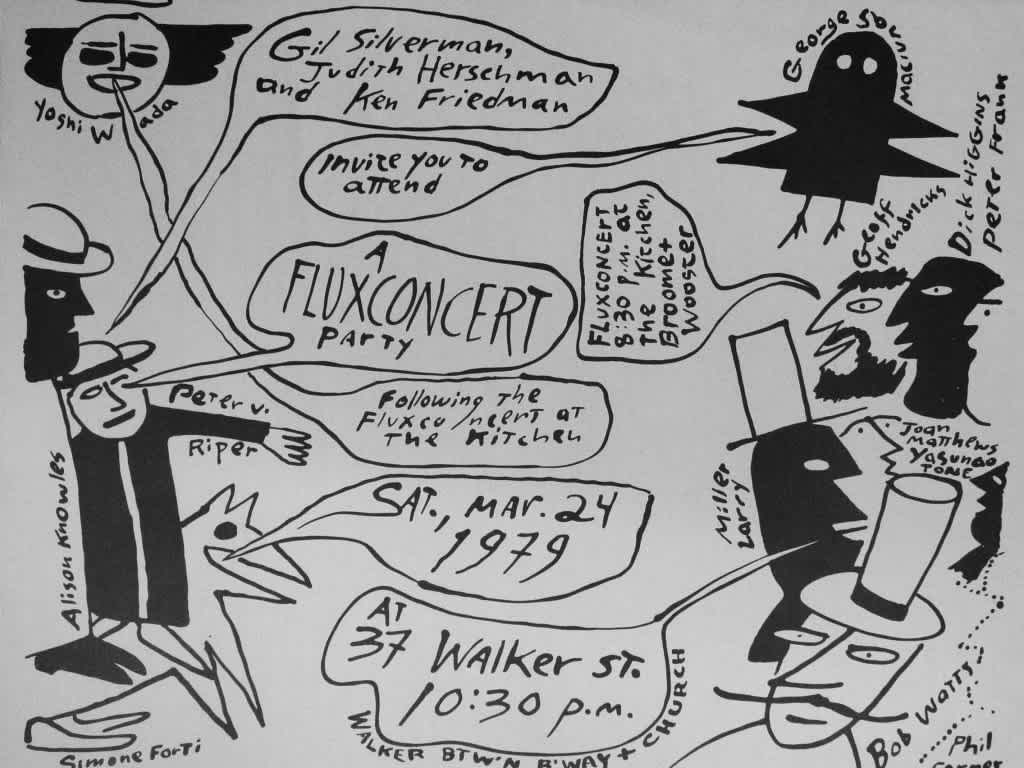 Yoshi Wada
Gil Silverman,
Judith Herschman
and Ken Friedman
George
Maciunas
Invite you to
attend
Dick Higgins
Peter Frank
Geoff
Hendricks
Fluxconcert
8:30 p.m. at
the Kitchen,
Broome +
Wooster
A
FLUXCONCERT
PARTY
Following the
Fluxconcert at
the Kitchen
Peter v.
Riper
Alison Knowles
Joan
Matthews
Yasunao
Tone
Miller
Larry
SAT., MAR. 24
1979
AT
37 Walker St.
10:30 p.m.
WALKER BTW'N B'WAY + CHURCH
Simone Forti
Bob Watts
Phil
Corner